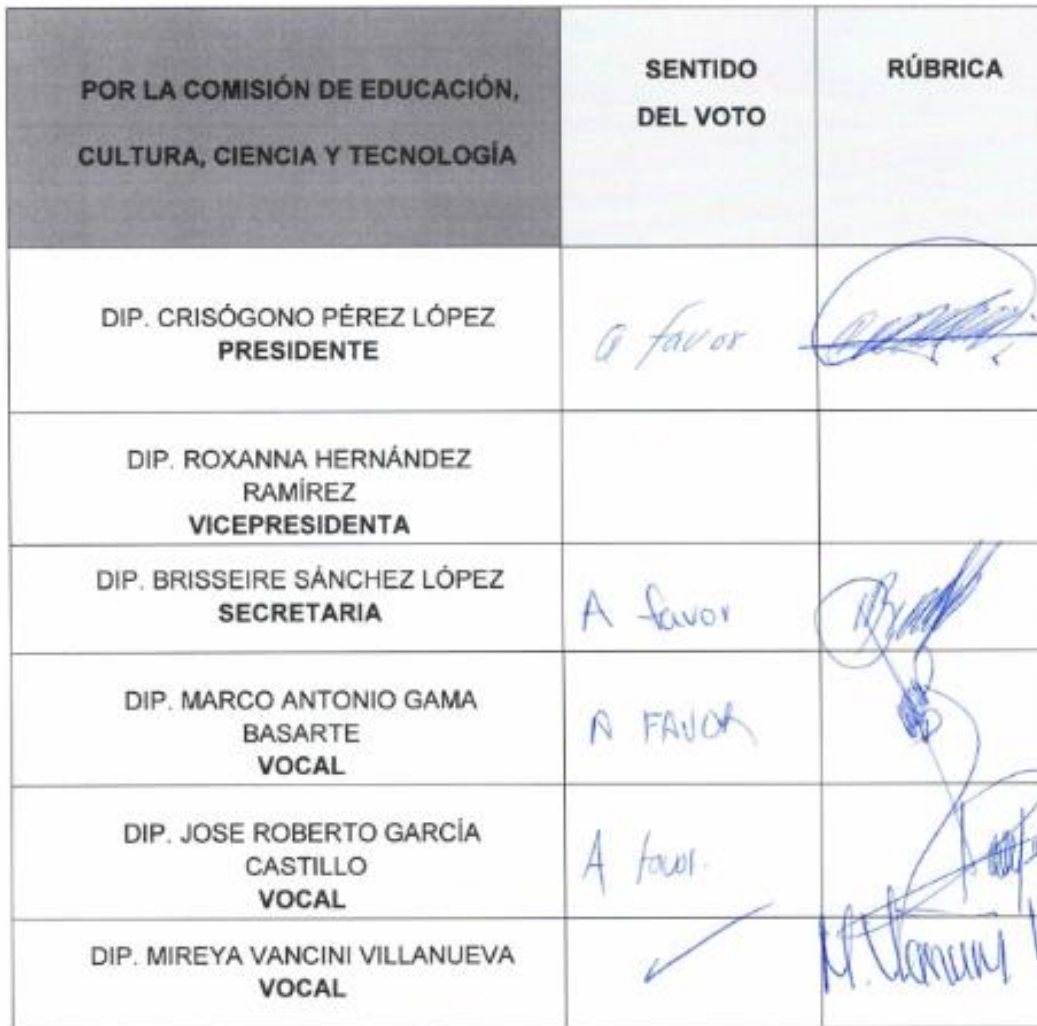 POR LA COMISIÓN DE EDUCACIÓN,
CULTURA, CIENCIA Y TECNOLOGÍA
SENTIDO
DEL VOTO
RÚBRICA
DIP. CRISÓGONO PÉREZ LÓPEZ
PRESIDENTE
a favor
DIP. ROXANNA HERNÁNDEZ
RAMÍREZ
VICEPRESIDENTA
DIP. BRISSEIRE SÁNCHEZ LÓPEZ
SECRETARIA
A favor
DIP. MARCO ANTONIO GAMA
BASARTE
VOCAL
A FAVOR
DIP. JOSE ROBERTO GARCÍA
CASTILLO
VOCAL
A favor.
DIP. MIREYA VANCINI VILLANUEVA
VOCAL
M. Vancini